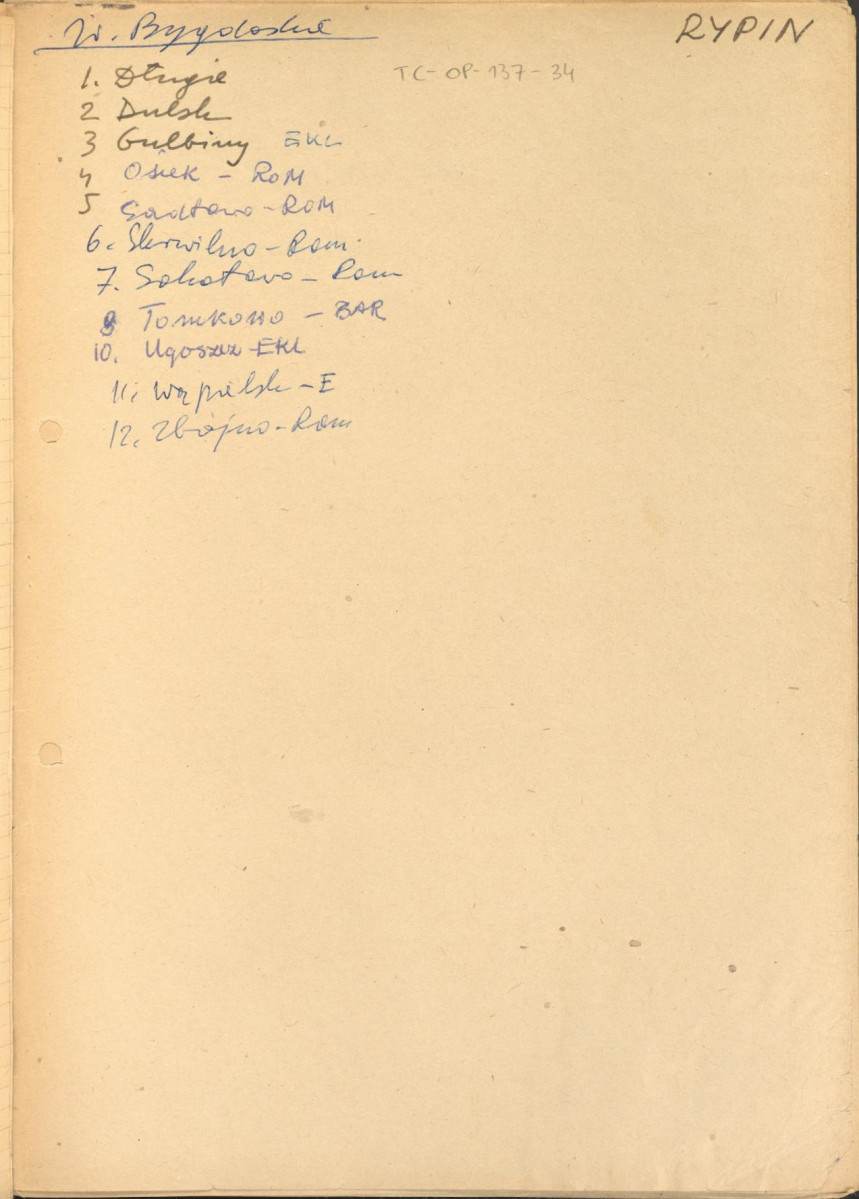 W. Bygdoskie
RYPIN
TC-OP-137-34
1. Długie
2 Dulsk
3 Gulbiny EKL
4 Osiek - ROM
5 Sadłowo - ROM
6. Skrwilno - Rom.
7. Sokołowo - Rom
9 Tomkowo - BAR
10. Ugoszcz - EKL
11. Wąpielsk - E
12. Zbójno - Rom